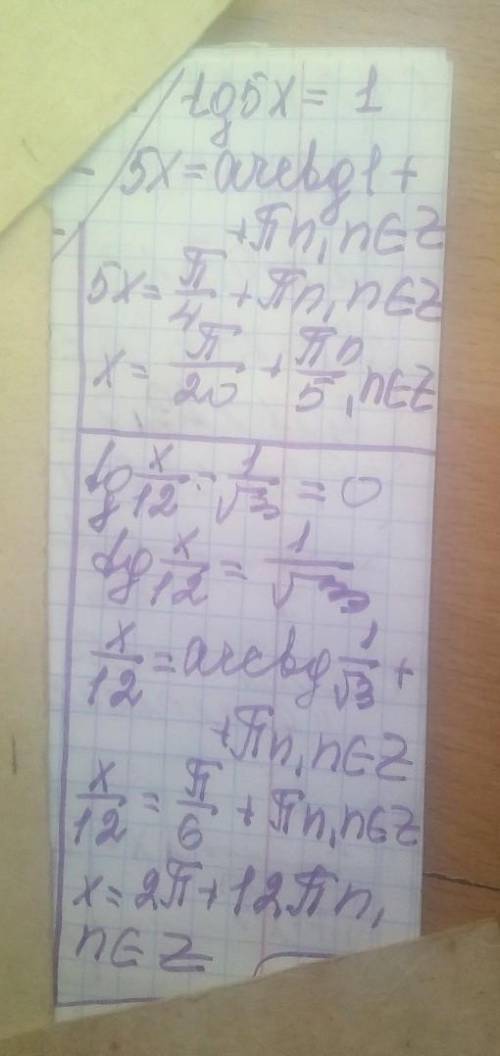 tg5x = 1
5x = arctg1 +
+πn, n∈Z
5x = π/4 + πn, n∈Z
x = π/20 + πn/5, n∈Z
tg x/12 - 1/√3 = 0
tg x/12 = 1/√3
x/12 = arctg 1/√3 +
+πn, n∈Z
x/12 = π/6 + πn, n∈Z
x = 2π + 12πn,
n∈Z